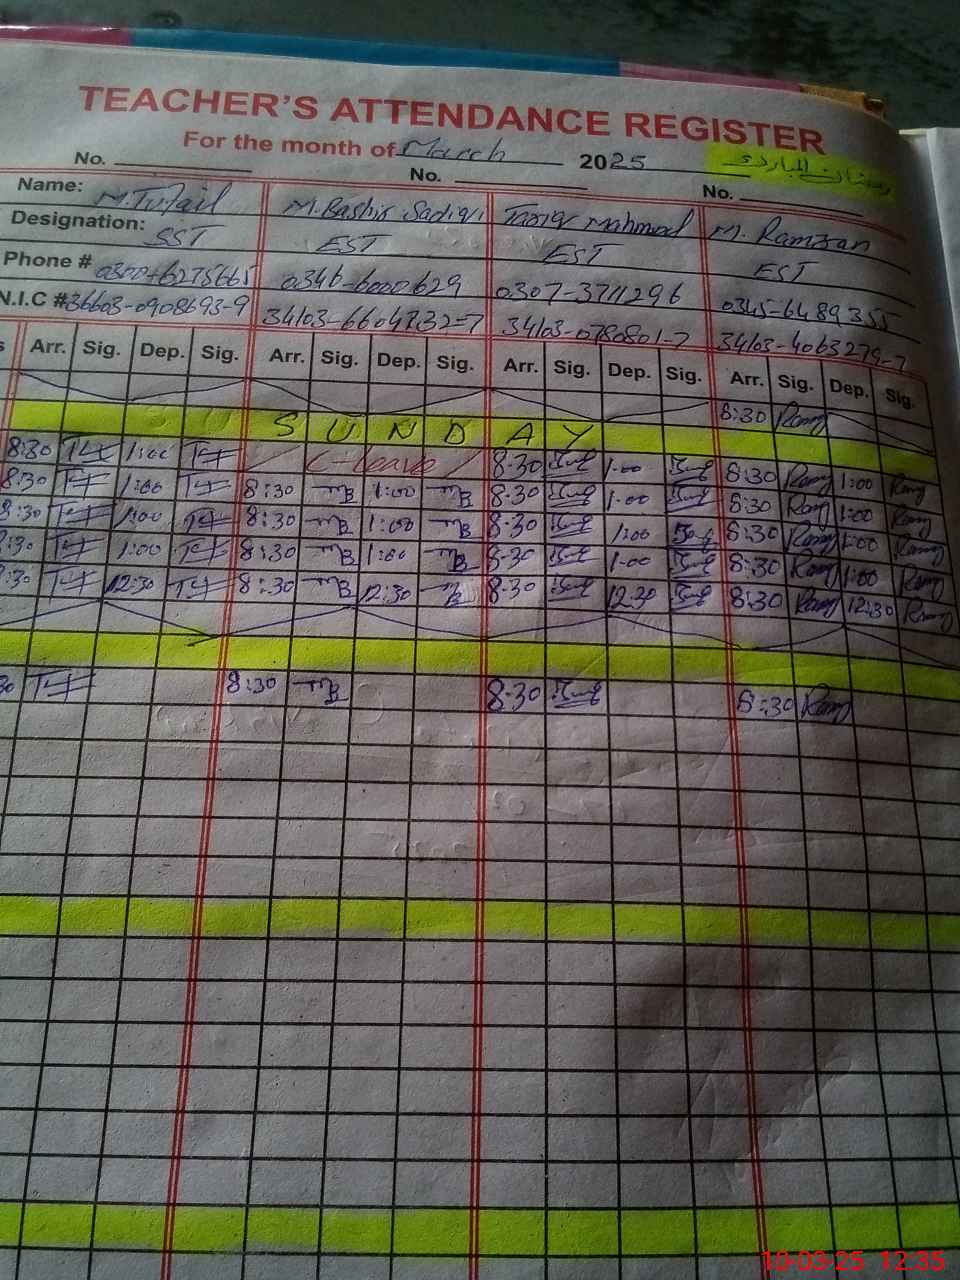 TEACHER'S ATTENDANCE REGISTER
For the month of March 2025
No. No. No.
Name: M. Tufail M. Bashir Sadiqi Tariq Mahmood M. Ramzan
Designation: SST EST EST EST
Phone # 0346-6000629 0307-3711296 0345-6489355
N.I.C # 36603-0908693-9 34103-0780801-7 34103-4063279-7
Arr. Sig. Dep. Sig. Arr. Sig. Dep. Sig. Arr. Sig. Dep. Sig. Arr. Sig. Dep. Sig.
8:30 Ramz
S U N D A Y
8:30 1:00 C-Leave 8:30 1:00 8:30 Ramz 1:00 Ramz
8:30 1:00 8:30 MB 1:00 MB 8:30 1:00 8:30 Ramz 1:00 Ramz
8:30 1:00 8:30 MB 1:00 MB 8:30 1:00 8:30 Ramz 1:00 Ramz
:30 1:00 8:30 MB 1:00 MB 8:30 1:00 8:30 Ramz 1:00 Ramz
:30 12:30 8:30 MB 12:30 MB 8:30 12:30 8:30 Ramz 12:30 Ramz
30 8:30 MB 8:30 8:30 Ramz
10-03-25 12:35